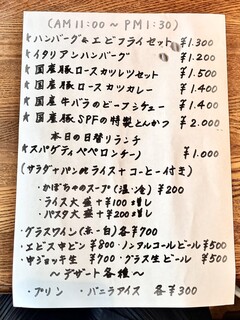 (AM 11:00 ~ PM 1:30)
★ハンバーグ&エビフライセット ¥1.300
★イタリアンハンバーグ ¥1.200
★国産豚ロースカツレツセット ¥1.500
★国産豚ロースカツカレー ¥1.400
★国産牛バラのビーフシチュー ¥1.400
★国産豚SPFの特製とんかつ ¥2.000
本日の日替りランチ
★スパゲティペペロンチーノ ¥1.000
(サラダ+パン or ライス+コーヒー付き)
・かぼちゃのスープ(温・冷) ¥200
・ライス大盛+¥100増し
・パスタ大盛+¥200増し
・グラスワイン(赤・白)各¥700
・エビス中ビン ¥800・ノンアルコールビール ¥500
・中ジョッキ生 ¥700・グラス生ビール ¥500
~デザート各種~
・プリン ・バニラアイス 各¥300